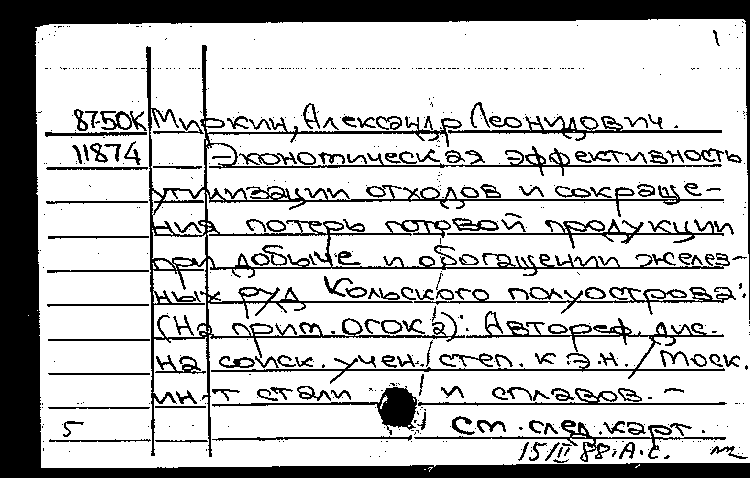 1
87-50К Миркин, Александр Леонидович.
11874 Экономическая эффективность
утилизации отходов и сокраще-
ния потерь готовой продукции
при добыче и обогащении желез-
ных руд Кольского полуострова:
(На прим. ОГОКа): Автореф. дис.
на соиск. учен. степ. к.э.н. / Моск.
ин-т стали и сплавов. –
5 См. след. карт.
15/II 88. А.С.